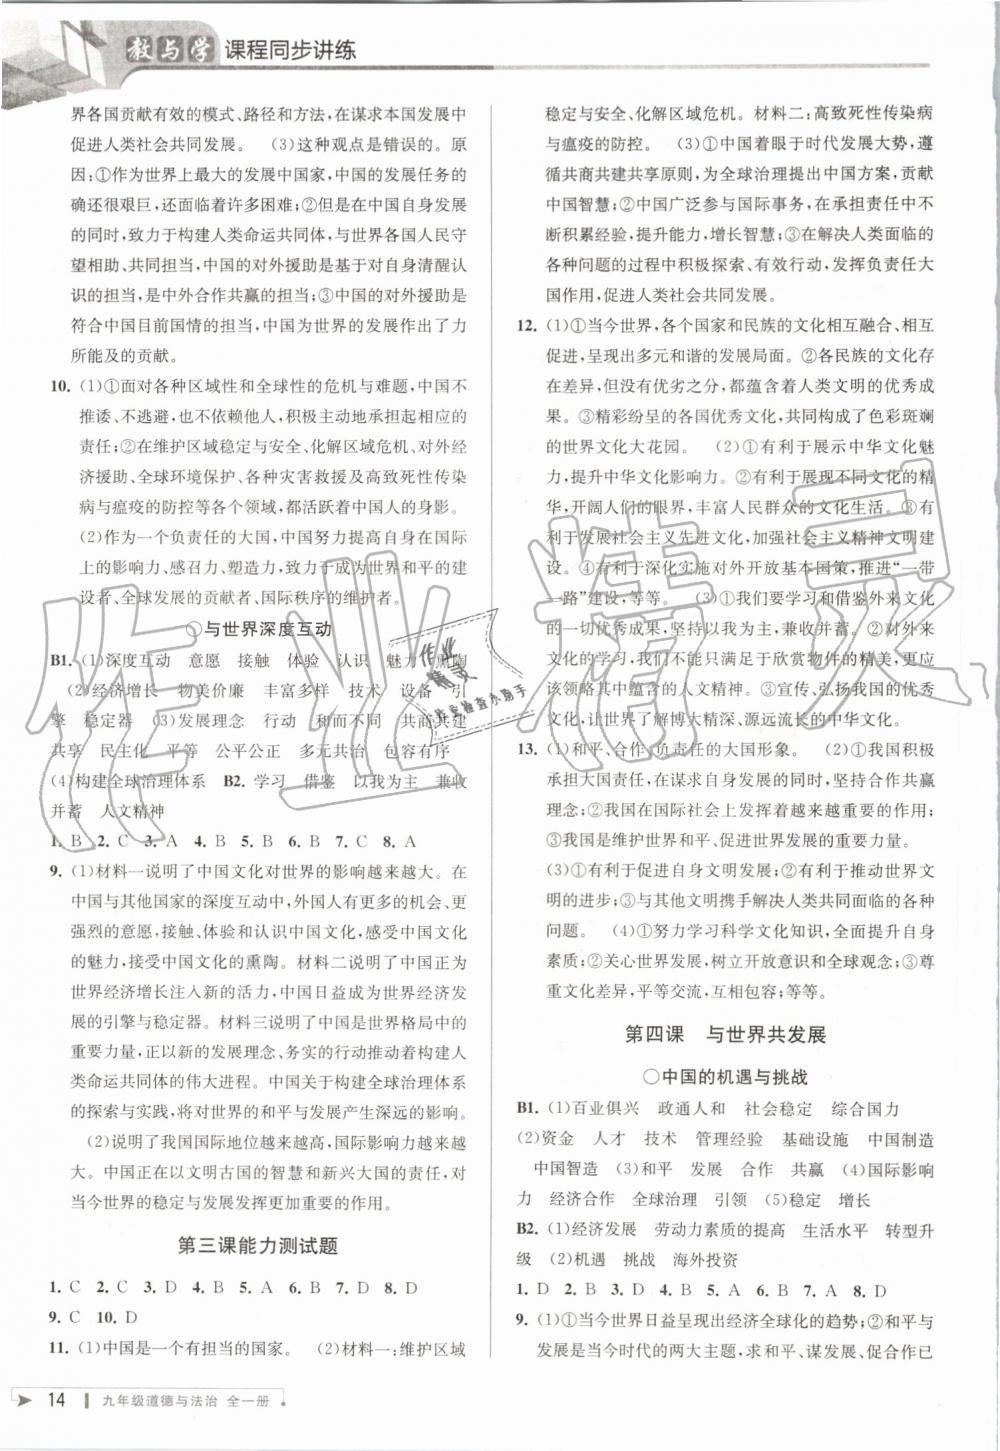 教与学 课程同步讲练
界各国贡献有效的模式、路径和方法,在谋求本国发展中
促进人类社会共同发展。 (3)这种观点是错误的。原
因:①作为世界上最大的发展中国家,中国的发展任务的
确还很艰巨,还面临着许多困难;②但是在中国自身发展
的同时,致力于构建人类命运共同体,与世界各国人民守
望相助、共同担当,中国的对外援助是基于对自身清醒认
识的担当,是中外合作共赢的担当;③中国的对外援助是
符合中国目前国情的担当,中国为世界的发展作出了力
所能及的贡献。
10. (1)①面对各种区域性和全球性的危机与难题,中国不
推诿、不逃避,也不依赖他人,积极主动地承担起自己的
责任;②在维护区域稳定与安全、化解区域危机、对外经
济援助、全球环境保护、各种灾害救援及高致死性传染
病与瘟疫的防控等各个领域,都活跃着中国人的身影。
(2)作为一个负责任的大国,中国努力提高自身在国际
上的影响力、感召力、塑造力,致力于成为世界和平的建
设者、全球发展的贡献者、国际秩序的维护者。
○与世界深度互动
B1. (1)深度互动 意愿 接触 体验 认识 魅力 熏陶
(2)经济增长 物美价廉 丰富多样 技术 设备 引
擎 稳定器 (3)发展理念 行动 和而不同 共商共建
共享 民主化 平等 公平公正 多元共治 包容有序
(4)构建全球治理体系 B2. 学习 借鉴 以我为主 兼收
并蓄 人文精神
1. B 2. C 3. A 4. B 5. B 6. B 7. C 8. A
9. (1)材料一说明了中国文化对世界的影响越来越大。在
中国与其他国家的深度互动中,外国人有更多的机会、更
强烈的意愿,接触、体验和认识中国文化,感受中国文化
的魅力,接受中国文化的熏陶。材料二说明了中国正为
世界经济增长注入新的活力,中国日益成为世界经济发
展的引擎与稳定器。材料三说明了中国是世界格局中的
重要力量,正以新的发展理念、务实的行动推动着构建人
类命运共同体的伟大进程。中国关于构建全球治理体系
的探索与实践,将对世界的和平与发展产生深远的影响。
(2)说明了我国国际地位越来越高,国际影响力越来越
大。中国正在以文明古国的智慧和新兴大国的责任,对
当今世界的稳定与发展发挥更加重要的作用。
第三课能力测试题
1. C 2. C 3. D 4. B 5. A 6. B 7. D 8. D
9. C 10. D
11. (1)中国是一个有担当的国家。 (2)材料一:维护区域
稳定与安全、化解区域危机。材料二:高致死性传染病
与瘟疫的防控。 (3)①中国着眼于时代发展大势,遵
循共商共建共享原则,为全球治理提供中国方案,贡献
中国智慧;②中国广泛参与国际事务,在承担责任中不
断积累经验,提升能力,增长智慧;③在解决人类面临的
各种问题的过程中积极探索、有效行动,发挥负责任大
国作用,促进人类社会共同发展。
12. (1)①当今世界,各个国家和民族的文化相互融合、相互
促进,呈现出多元和谐的发展局面。②各民族的文化存
在差异,但没有优劣之分,都蕴含着人类文明的优秀成
果。③精彩纷呈的各国优秀文化,共同构成了色彩斑斓
的世界文化大花园。 (2)①有利于展示中华文化魅
力,提升中华文化影响力。②有利于展现不同文化的精
华,开阔人们的眼界,丰富人民群众的文化生活。③有
利于发展社会主义先进文化,加强社会主义精神文明建
设。④有利于深化实施对外开放基本国策,推进“一带
一路”建设,等等。 (3)①我们要学习和借鉴外来文化
的优秀成果,坚持以我为主,兼收并蓄。②对优秀外来
文化的学习,我们不能只满足于欣赏物件的精美,更应
该领略其中蕴含的人文精神。③宣传、弘扬我国的优秀
文化,让世界了解博大精深、源远流长的中华文化。
13. (1)和平、合作、负责任的大国形象。 (2)①我国积极
承担大国责任,在谋求自身发展的同时,坚持合作共赢
理念;②我国在国际社会上发挥着越来越重要的作用;
③我国是维护世界和平、促进世界发展的重要力量。
(3)①有利于促进自身文明发展;②有利于推动世界文
明的进步;③与其他文明携手解决人类共同面临的各种
问题。 (4)①努力学习科学文化知识,全面提升自身
素质;②关心世界发展,树立开放意识和全球观念;③尊
重文化差异,平等交流,互相包容;等等。
第四课 与世界共发展
○中国的机遇与挑战
B1. (1)百业俱兴 政通人和 社会稳定 综合国力
(2)资金 人才 技术 管理经验 基础设施 中国制造
中国智造 (3)和平 发展 合作 共赢 (4)国际影响
力 经济合作 全球治理 引领 (5)稳定 增长
B2. (1)经济发展 劳动力素质的提高 生活水平 转型升
级 (2)机遇 挑战 海外投资
1. D 2. B 3. D 4. B 5. A 6. B 7. A 8. D
9. (1)①当今世界日益呈现出经济全球化的趋势;②和平与
发展是当今时代的两大主题,求和平、谋发展、促合作已
14 九年级道德与法治 全一册
作业精灵
作业
精灵
作业检查小助手